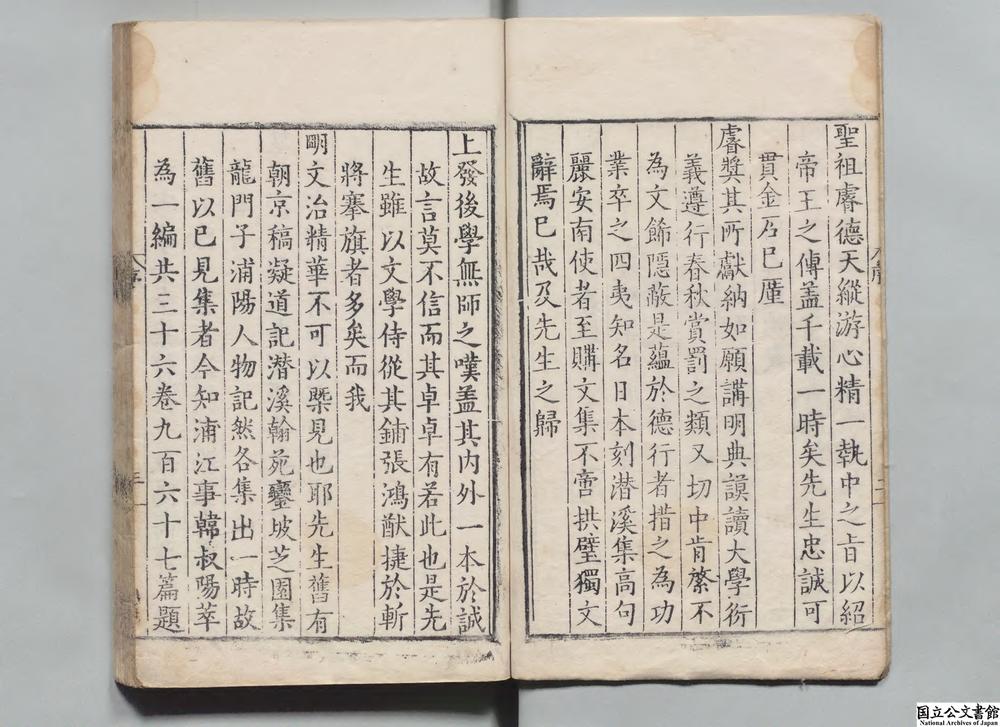 聖祖睿德天縱游心精一執中之旨以紹
帝王之傳盖千載一時矣先生忠誠可
貫金石已厪
睿獎其所獻納如願講明典謨讀大學衍
義遵行春秋賞罰之類又切中肯綮不
為文飾隠蔽是蘊於德行者措之為功
業卒之四夷知名日本刻潜溪集高句
麗安南使者至購文集不啻拱璧獨文
辭焉已哉及先生之歸
上發後學無師之嘆盖其内外一本於誠
故言莫不信而其卓卓有若此也是先
生雖以文學侍從其鋪張鴻猷捷於斬
將搴旗者多矣而我
朙文治精華不可以槩見也耶先生舊有
朝京稿凝道記潜溪翰苑鑾坡芝園集
龍門子浦陽人物記然各集出一時故
舊以已見集者今知浦江事韓叔陽萃
為一編共三十六卷九百六十七篇題
国立公文書館
National Archives of Japan